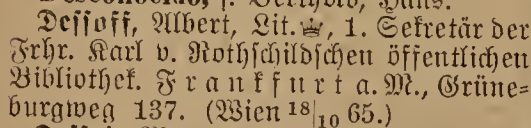 Dessoff, Albert, Lit. ♕, 1. Sekretär der
Frhr. Karl v. Rothschildschen öffentlichen
Bibliothek. Frankfurt a. M., Grüne=
burgweg 137. (Wien 18/10 65.)